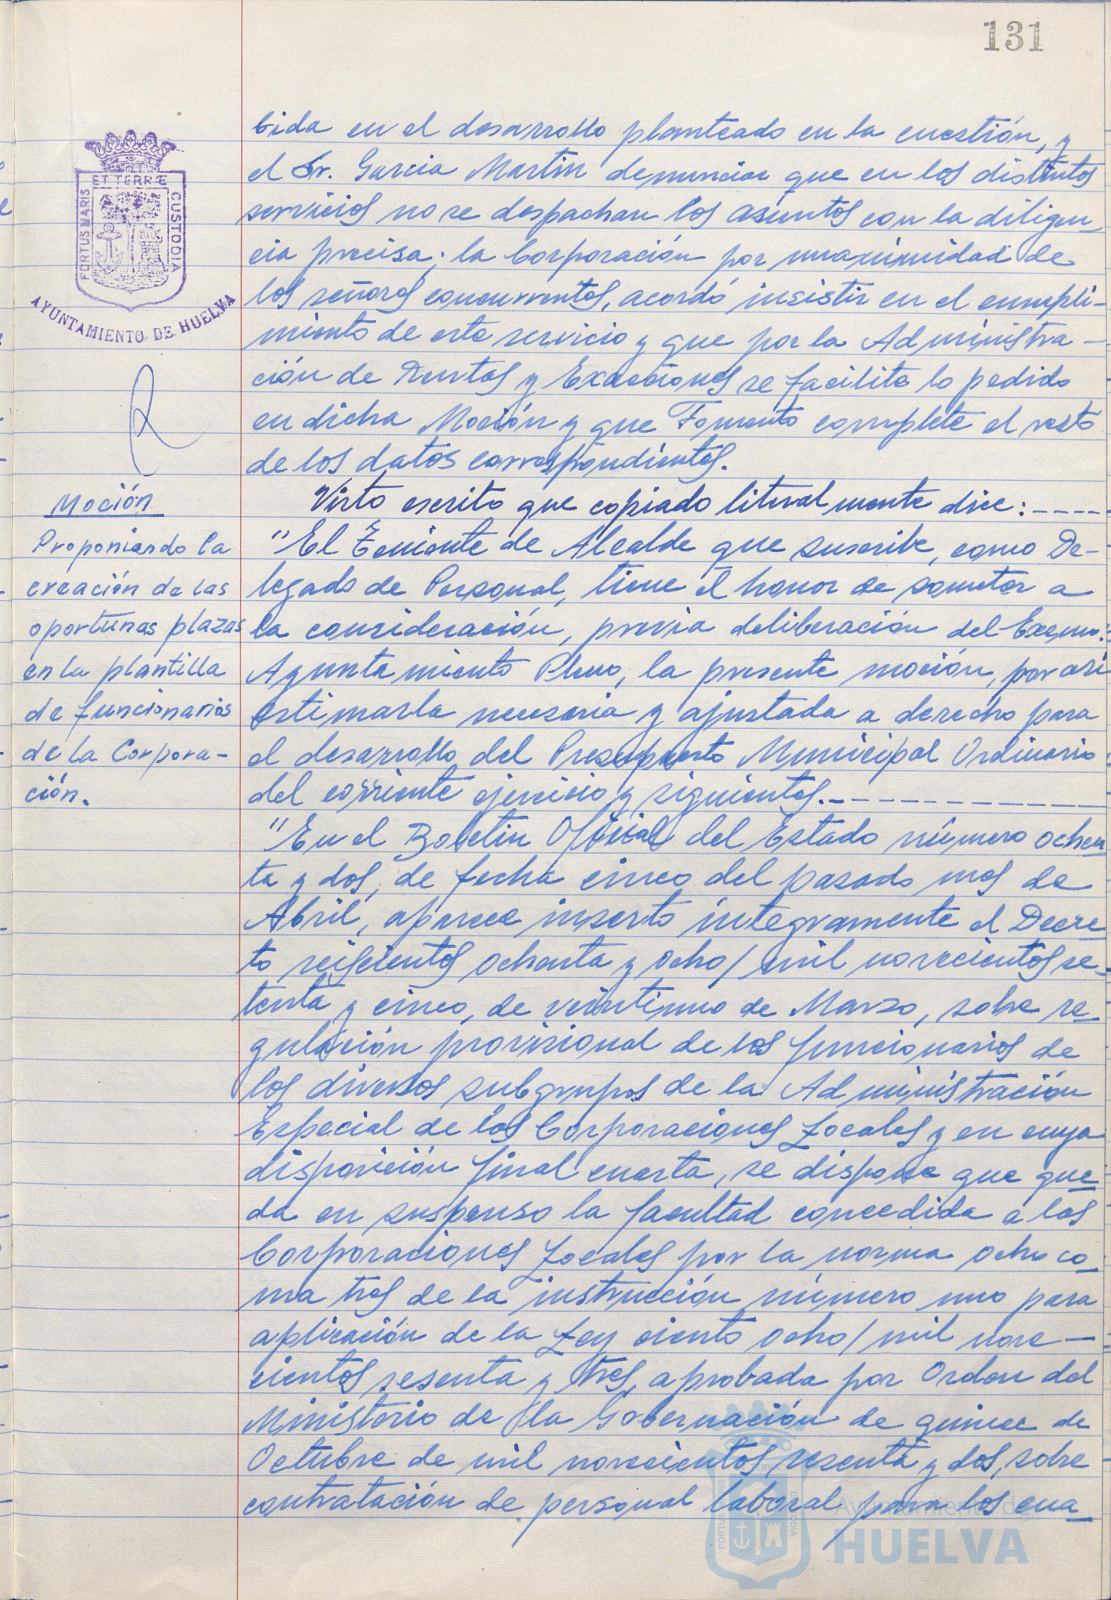 131
PORTUS MARIS
ET TERRÆ
CUSTODIA
AYUNTAMIENTO DE HUELVA
bida en el desarrollo planteado en la cuestión, y
el Sr. Garcia Martin denunciar que en los distintos
servicios no se despachan los asuntos con la diligen
cia precisa; la Corporación por unanimidad de
los señores concurrentes, acordó insistir en el cumpli-
miento de este servicio y que por la Administra-
ción de Rentas y Exacciones se facilite lo pedido
en dicha Moción y que Fomento complete el resto
de los datos correspondientes.
Moción
Proponiendo la
creación de las
oportunas plazas
en la plantilla
de funcionarios
de la Corpora-
ción.
Visto escrito que copiado literalmente dice:----
"El Teniente de Alcalde que suscribe, como De-
legado de Personal, tiene el honor de someter a
la consideración, previa deliberación del Excmo.
Ayuntamiento Pleno, la presente moción, por asi
estimarla necesaria y ajustada a derecho para
el desarrollo del Presupuesto Municipal Ordinario
del corriente ejercicio y siguientes.-------------
"En el Boletin Oficial del Estado número ochen
ta y dos, de fecha cinco del pasado mes de
Abril, aparece inserto integramente el Decre
to seiscientos ochenta y ocho/ mil novecientos se-
tenta y cinco, de veintiuno de Marzo, sobre re-
gulación provisional de los funcionarios de
los diversos subgrupos de la Administración
Especial de las Corporaciones Locales y en cuya
disposición final cuarta, se dispone que que-
da en suspenso la facultad concedida a las
Corporaciones Locales por la norma ocho co-
ma tres de la instrucción número uno para
aplicación de la Ley ciento ocho/ mil nove-
cientos sesenta y tres, aprobada por Orden del
Ministerio de la Gobernación de quince de
Octubre de mil novecientos sesenta y dos, sobre
contratación de personal laboral para los cua-
Ayuntamiento de
HUELVA